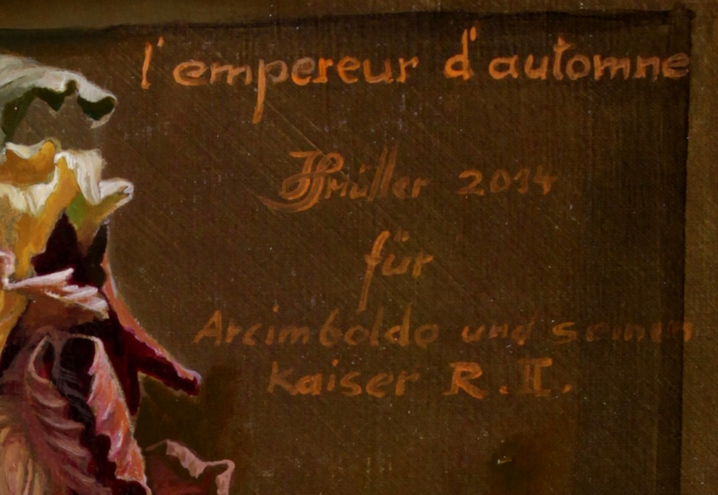 l'empereur d'automne
Müller 2014
für
Arcimboldo und seinen
Kaiser R.II.